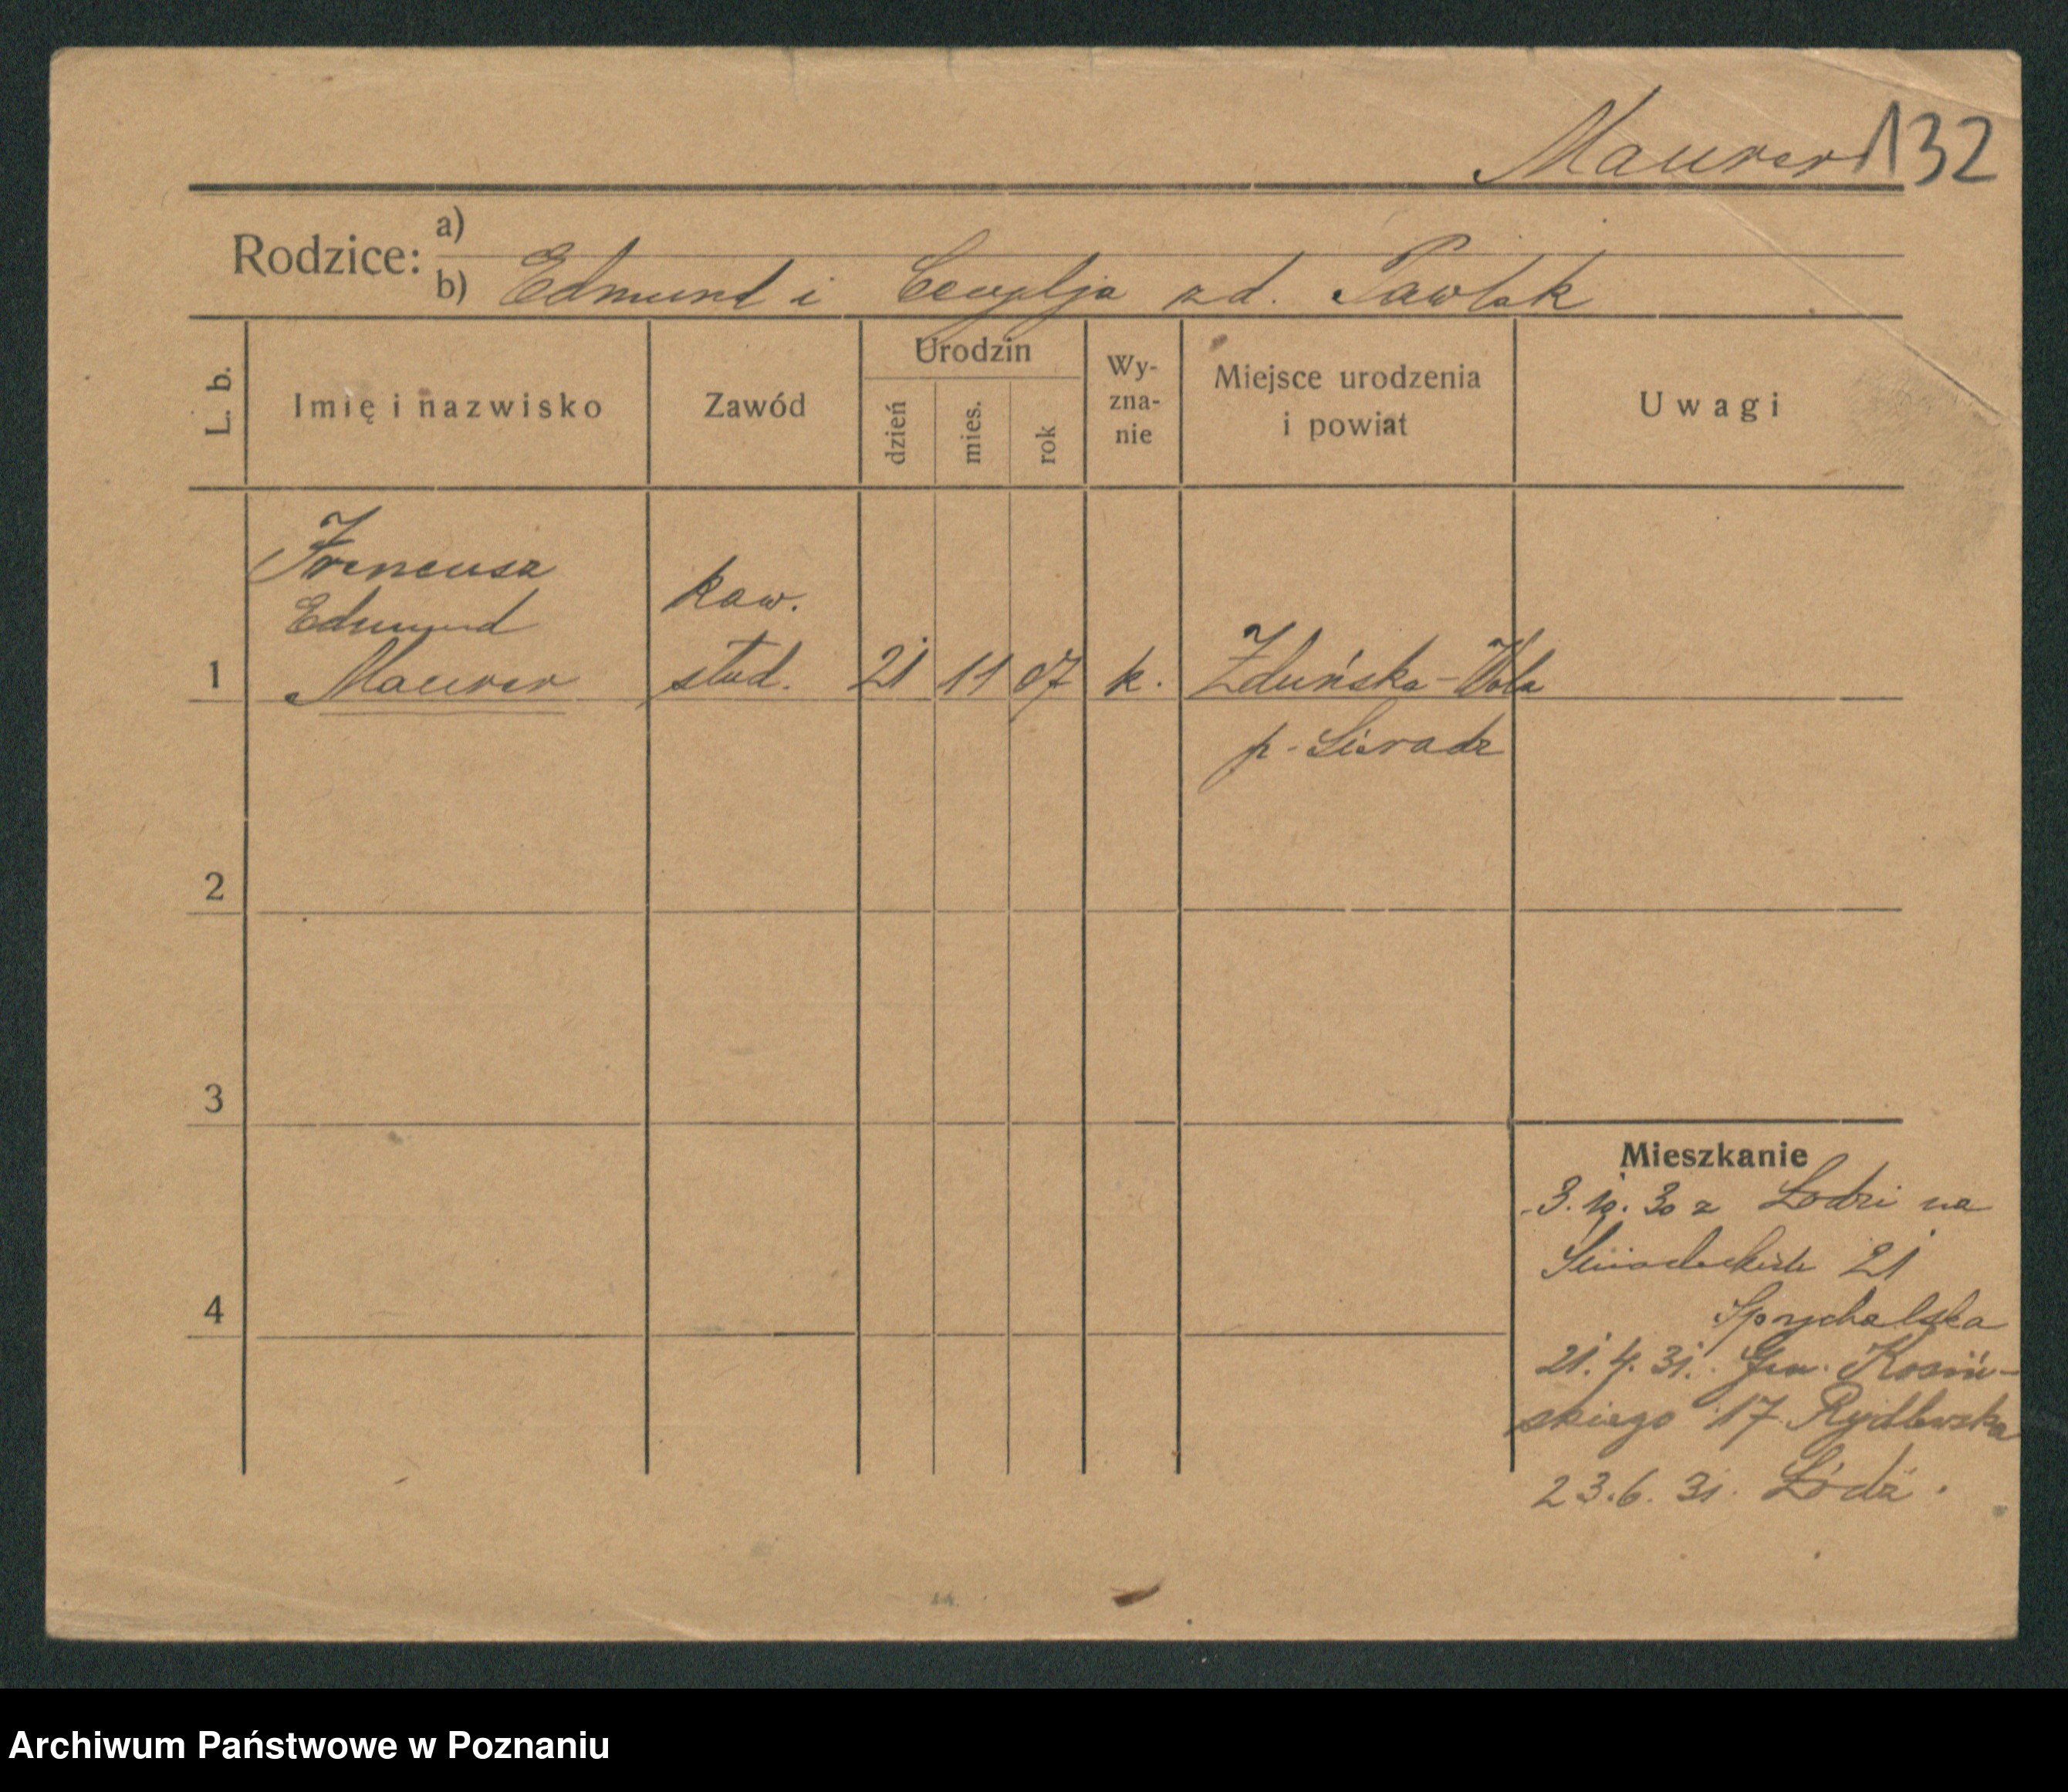 Maurer 132
Rodzice: a)
b) Edmund i Cecylja zd. Pawlak
L. b.
Imię i nazwisko
Zawód
Urodzin
dzień
mies.
rok
Wy-
zna-
nie
Miejsce urodzenia
i powiat
Uwagi
Ireneusz
Edmund
Maurer
kaw.
stud.
1
21 11 07 k. Zduńska-Wola
p. Sieradz
2
3
4
Mieszkanie
3. 10. 30 z Łodzi na
Śniadeckich 21
Sprychalska
21. 4. 31. Gen. Kosiń-
skiego 17 Rydlewska
23. 6. 31. Łódź.
Archiwum Państwowe w Poznaniu